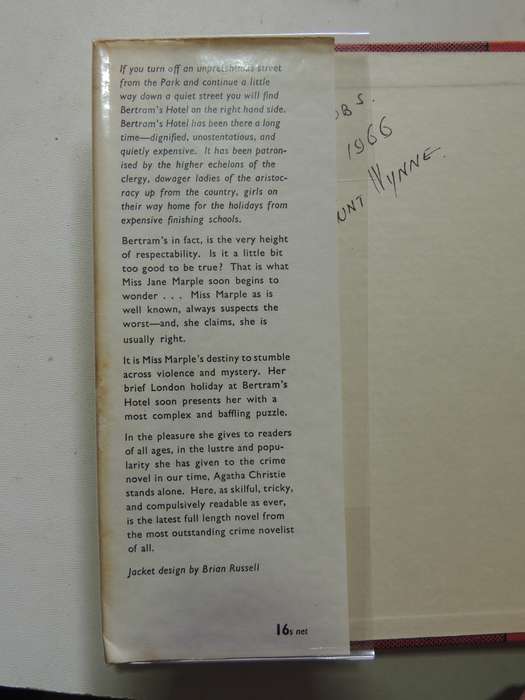 If you turn off an unpretentious street
from the Park and continue a little
way down a quiet street you will find
Bertram's Hotel on the right hand side.
Bertram's Hotel has been there a long
time—dignified, unostentatious, and
quietly expensive. It has been patron-
ised by the higher echelons of the
clergy, dowager ladies of the aristoc-
racy up from the country, girls on
their way home for the holidays from
expensive finishing schools.
Bertram's in fact, is the very height
of respectability. Is it a little bit
too good to be true? That is what
Miss Jane Marple soon begins to
wonder . . . Miss Marple as is
well known, always suspects the
worst—and, she claims, she is
usually right.
It is Miss Marple's destiny to stumble
across violence and mystery. Her
brief London holiday at Bertram's
Hotel soon presents her with a
most complex and baffling puzzle.
In the pleasure she gives to readers
of all ages, in the lustre and popu-
larity she has given to the crime
novel in our time, Agatha Christie
stands alone. Here, as skilful, tricky,
and compulsively readable as ever,
is the latest full length novel from
the most outstanding crime novelist
of all.
Jacket design by Brian Russell
16s net
1966
WYNNE.